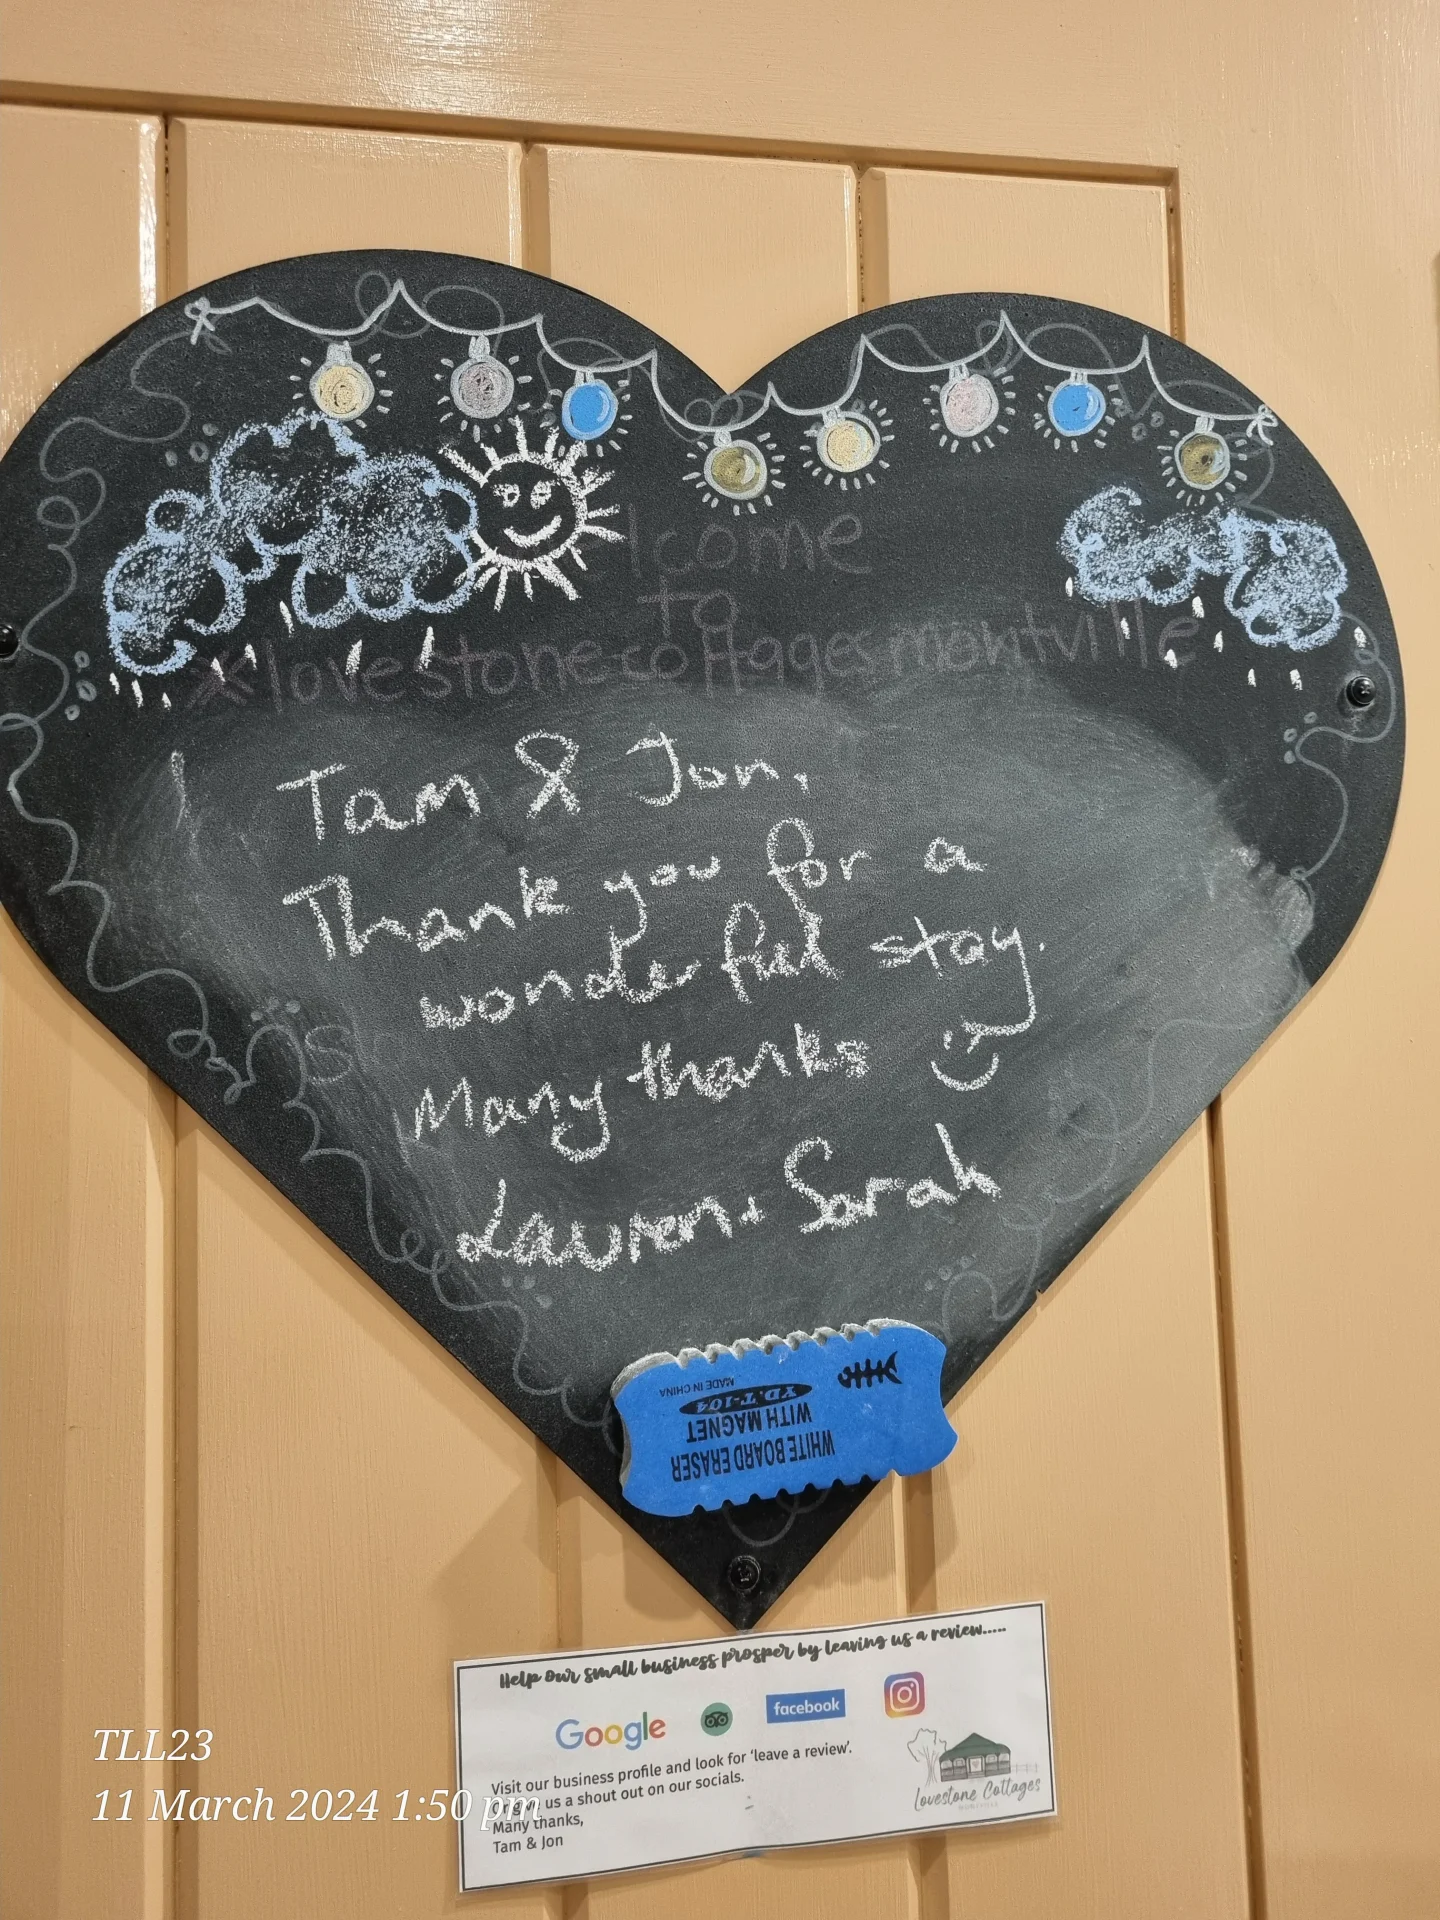 lcome
to
lovestonecottagesmontville
Tam & Jon,
Thank you for a
wonderful stay.
Many thanks
Lauren + Sarah
MADE IN CHINA
YD.T-104
WITH MAGNET
WHITE BOARD ERASER
Help our small business prosper by leaving us a review.....
Google
facebook
Visit our business profile and look for 'leave a review'.
us a shout out on our socials.
Many thanks,
Tam & Jon
Lovestone Cottages
TLL23
11 March 2024 1:50 pm